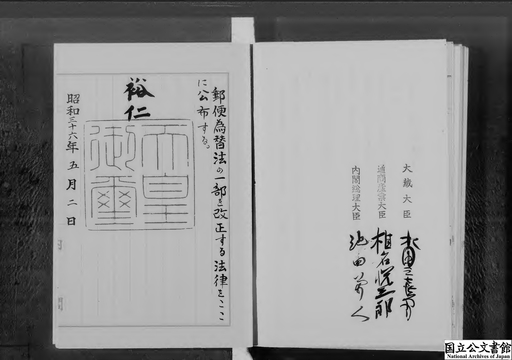 郵便為替法の一部を改正する法律をここ
に公布する。
裕仁
天皇
御璽
昭和三十六年五月二日
大蔵大臣
通商産業大臣 椎名悦三郎
内閣総理大臣 池田勇人
国立公文書館
National Archives of Japan